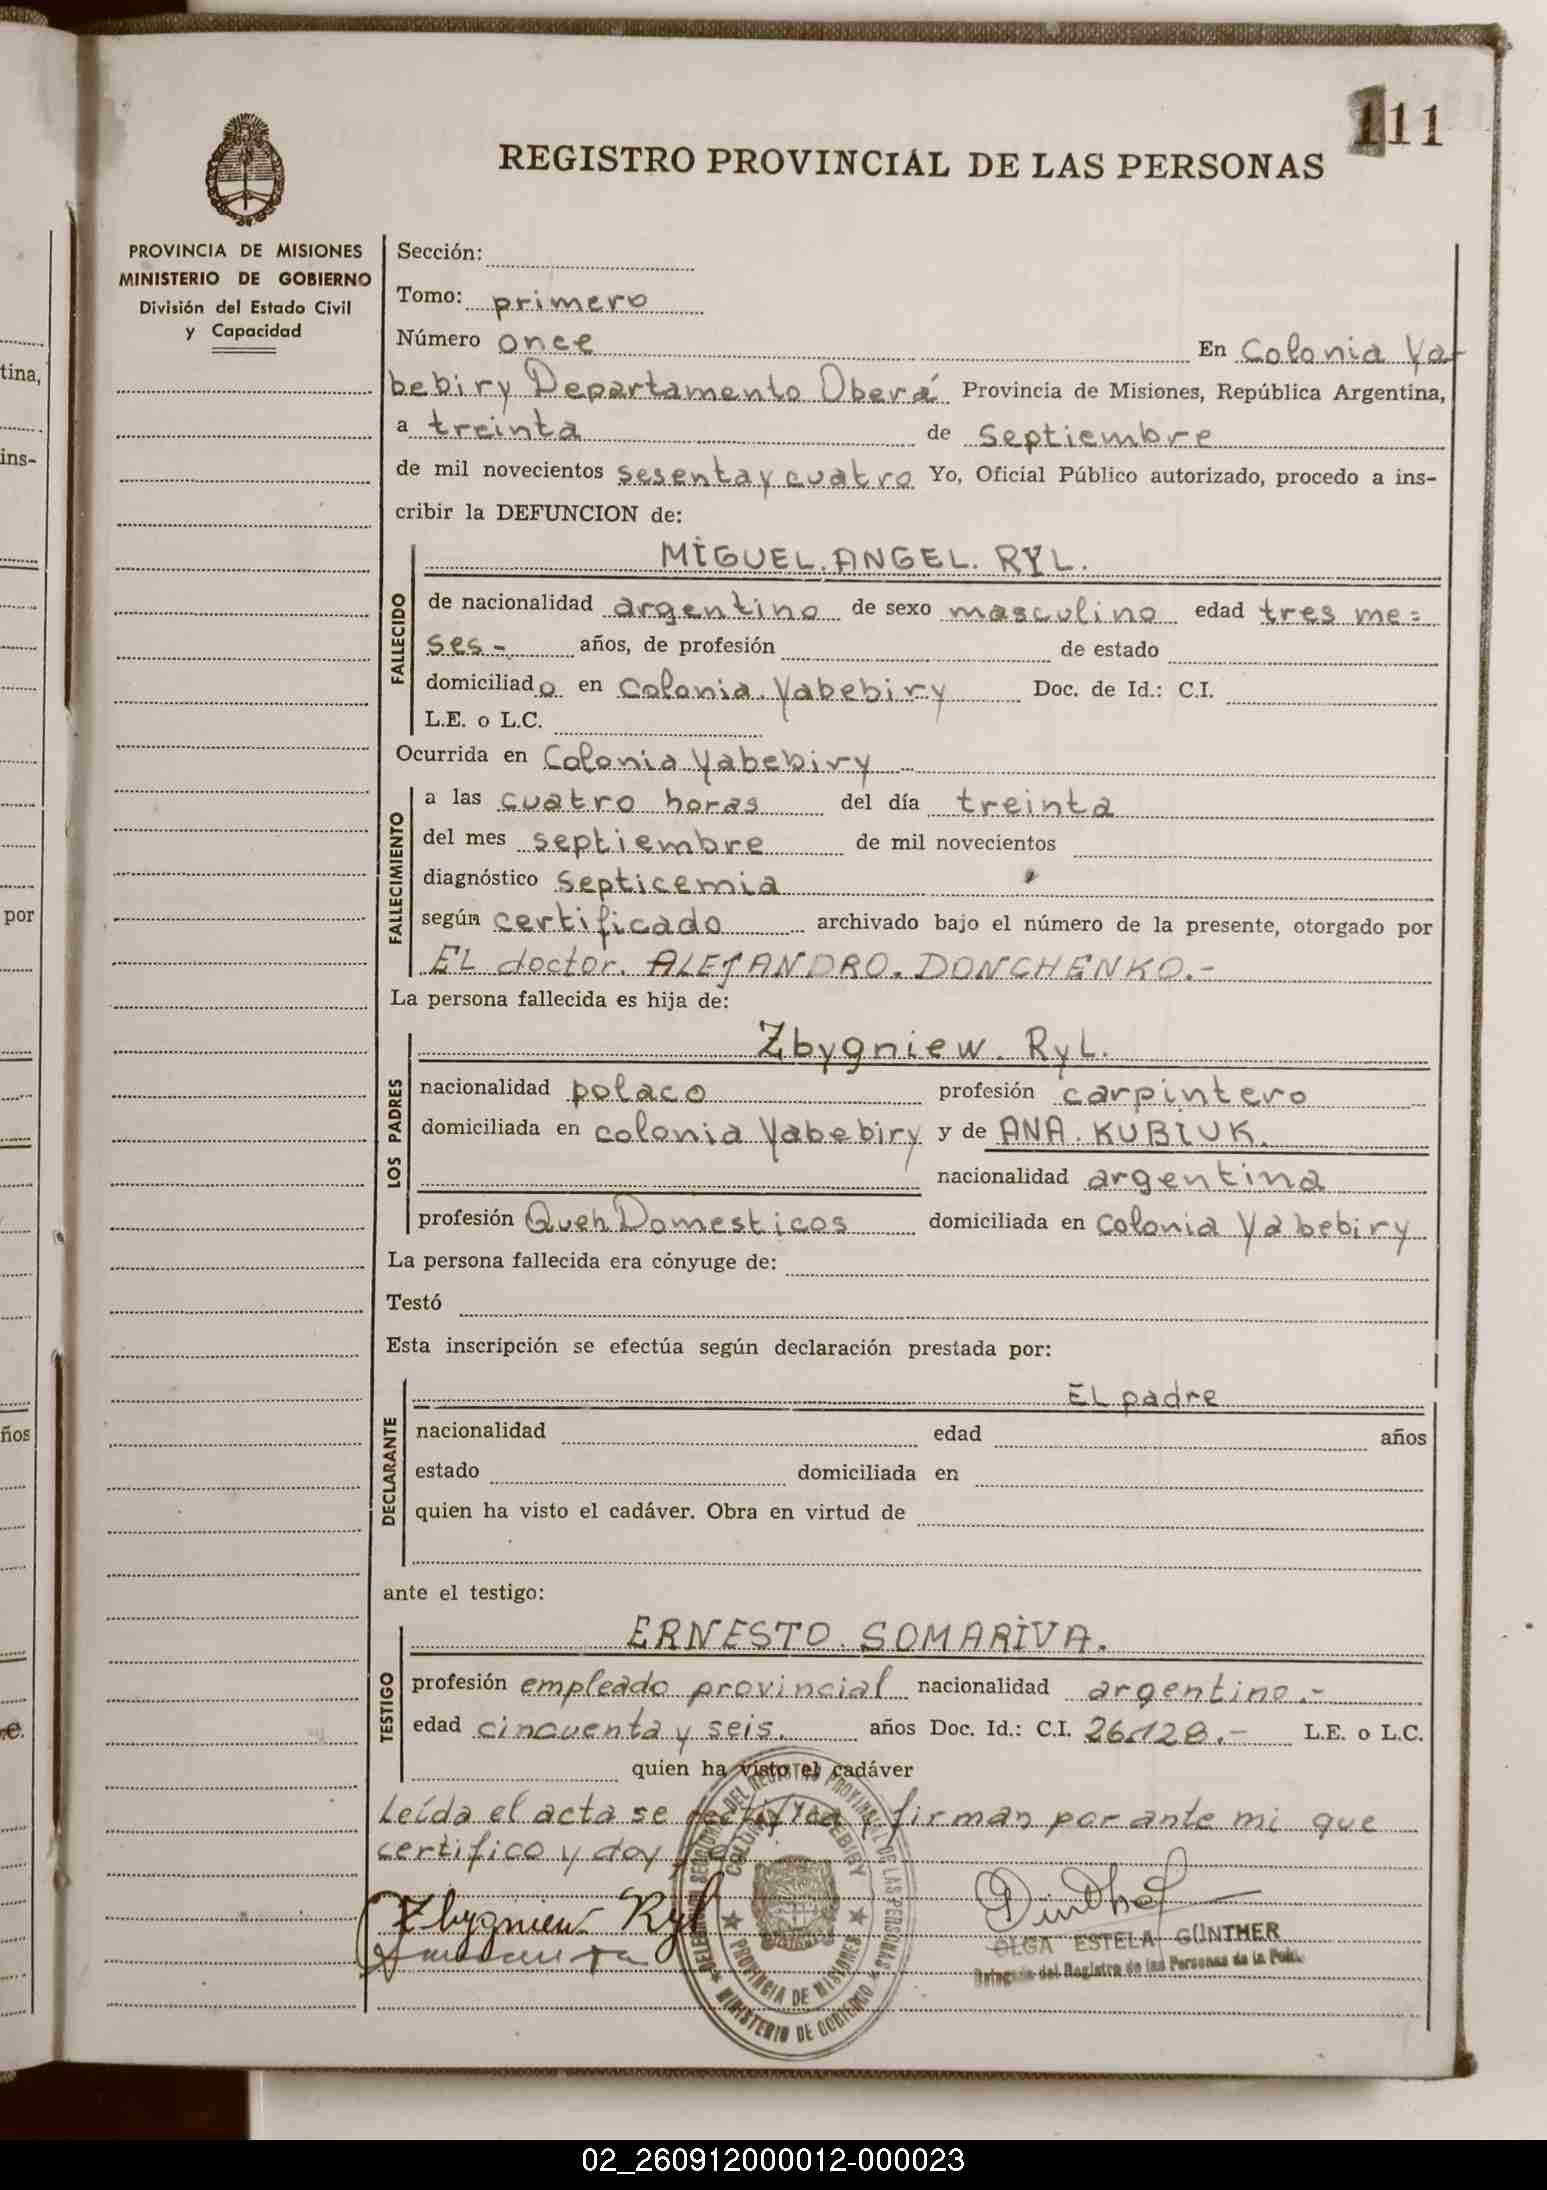 111
REGISTRO PROVINCIAL DE LAS PERSONAS
PROVINCIA DE MISIONES
MINISTERIO DE GOBIERNO
División del Estado Civil
y Capacidad
Sección:
Tomo: primero
Número once En Colonia Ya-
bebiry Departamento Oberá Provincia de Misiones, República Argentina,
a treinta de septiembre
de mil novecientos sesenta y cuatro Yo, Oficial Público autorizado, procedo a ins-
cribir la DEFUNCION de:
FALLECIDO
MIGUEL. ANGEL. RYL.
de nacionalidad argentino de sexo masculino edad tres me=
ses - años, de profesión de estado
domiciliado en Colonia Yabebiry Doc. de Id.: C.I.
L.E. o L.C.
Ocurrida en Colonia Yabebiry -
FALLECIMIENTO
a las cuatro horas del día treinta
del mes septiembre de mil novecientos
diagnóstico septicemia
según certificado archivado bajo el número de la presente, otorgado por
EL doctor. ALEJANDRO. DONCHENKO.-
La persona fallecida es hija de:
LOS PADRES
Zbygniew. RyL.
nacionalidad polaco profesión carpintero
domiciliada en colonia Yabebiry y de ANA. KUBIUK.
nacionalidad argentina
profesión Queh. Domesticos domiciliada en Colonia Yabebiry
La persona fallecida era cónyuge de:
Testó
Esta inscripción se efectúa según declaración prestada por:
DECLARANTE
EL padre
nacionalidad edad años
estado domiciliada en
quien ha visto el cadáver. Obra en virtud de
ante el testigo:
TESTIGO
ERNESTO. SOMARIVA.
profesión empleado provincial nacionalidad argentino.-
edad cincuenta y seis. años Doc. Id.: C.I. 26.128.- L.E. o L.C.
quien ha visto el cadáver
Leída el acta se ratifica y firman por ante mi que
certifico y doy fe
Zbygniew Ryl
OLGA ESTELA GÜNTHER
Delegada del Registro de las Personas de la Pcia.
DEL REGISTRO PROVINCIAL DE LAS PERSONAS
COLONIA YABEBIRY
PROVINCIA DE MISIONES
MINISTERIO DE GOBIERNO
tina,
ins-
por
ños
02_260912000012-000023